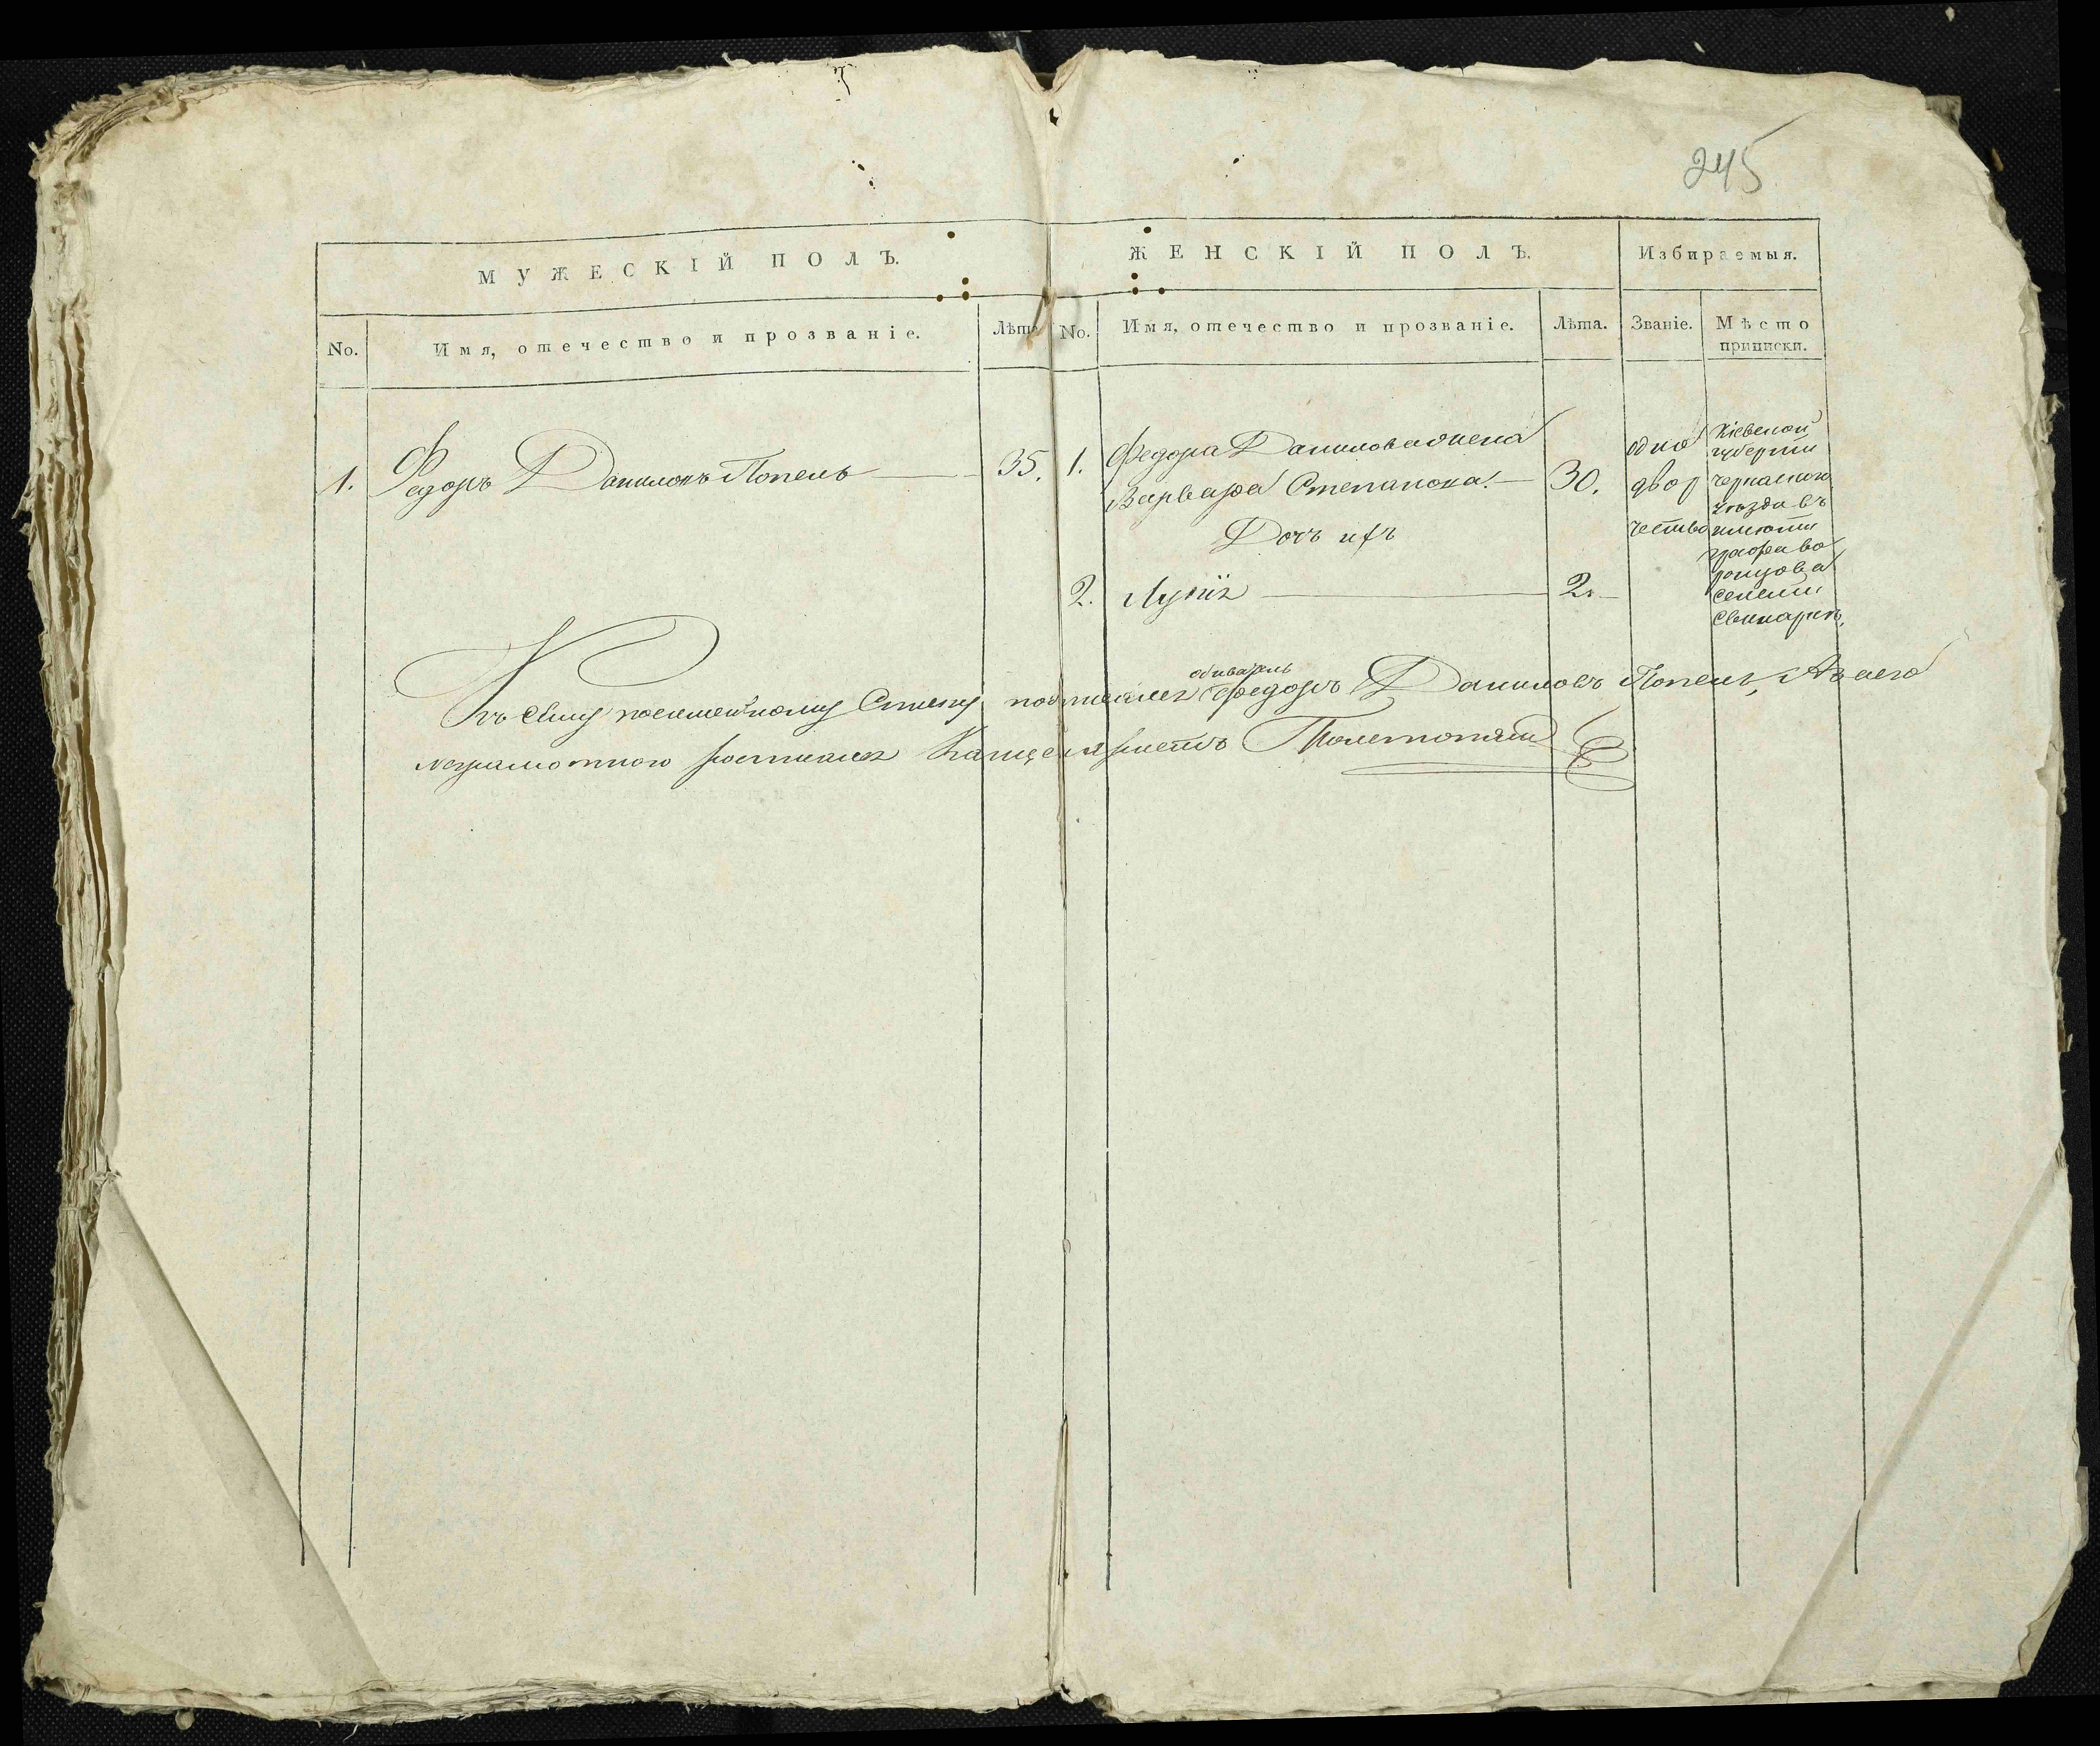 245
МУЖЕСКІЙ ПОЛЪ.
ЖЕНСКІЙ ПОЛЪ.
Избираемыя.
No.
Имя, отечество и прозваніе.
Лѣта
No.
Имя, отечество и прозваніе.
Лѣта.
Званіе.
Мѣсто
приписки.
1. Федоръ Даниловъ Попель 35.
1. Федора Данилова жена
Варвара Степанова. 30.
Дочь ихъ
2. 2.
одно
двор
чество
Кіевской
губерніи
Черкаского
уезда въ
имѣніи
графа Во
ронцова
селеніи
Къ сему посемейному списку подписался обыватель Федоръ Даниловъ Попель, А за его
неграмотного росписался Канцеляристъ